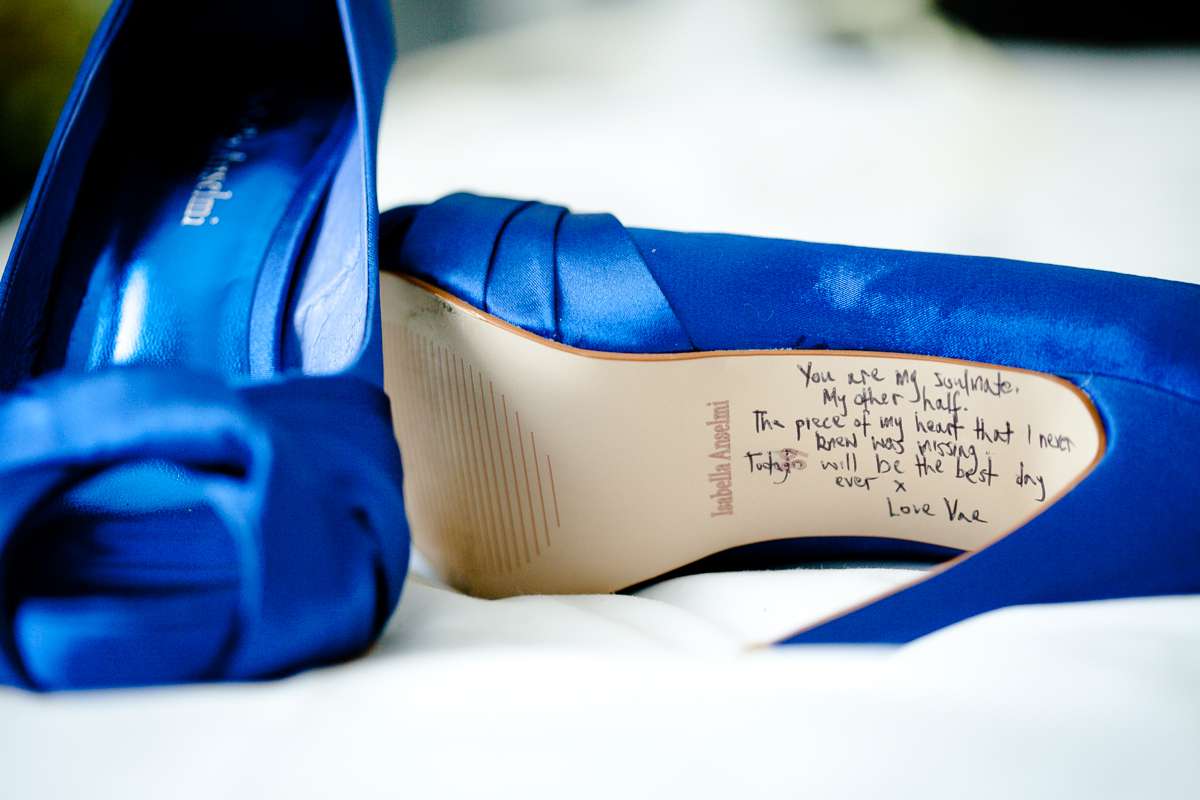 Anselmi
Isabella Anselmi
39
You are my soulmate.
My other half.
The piece of my heart that I never
knew was missing..
Today will be the best day
ever x
Love Vae